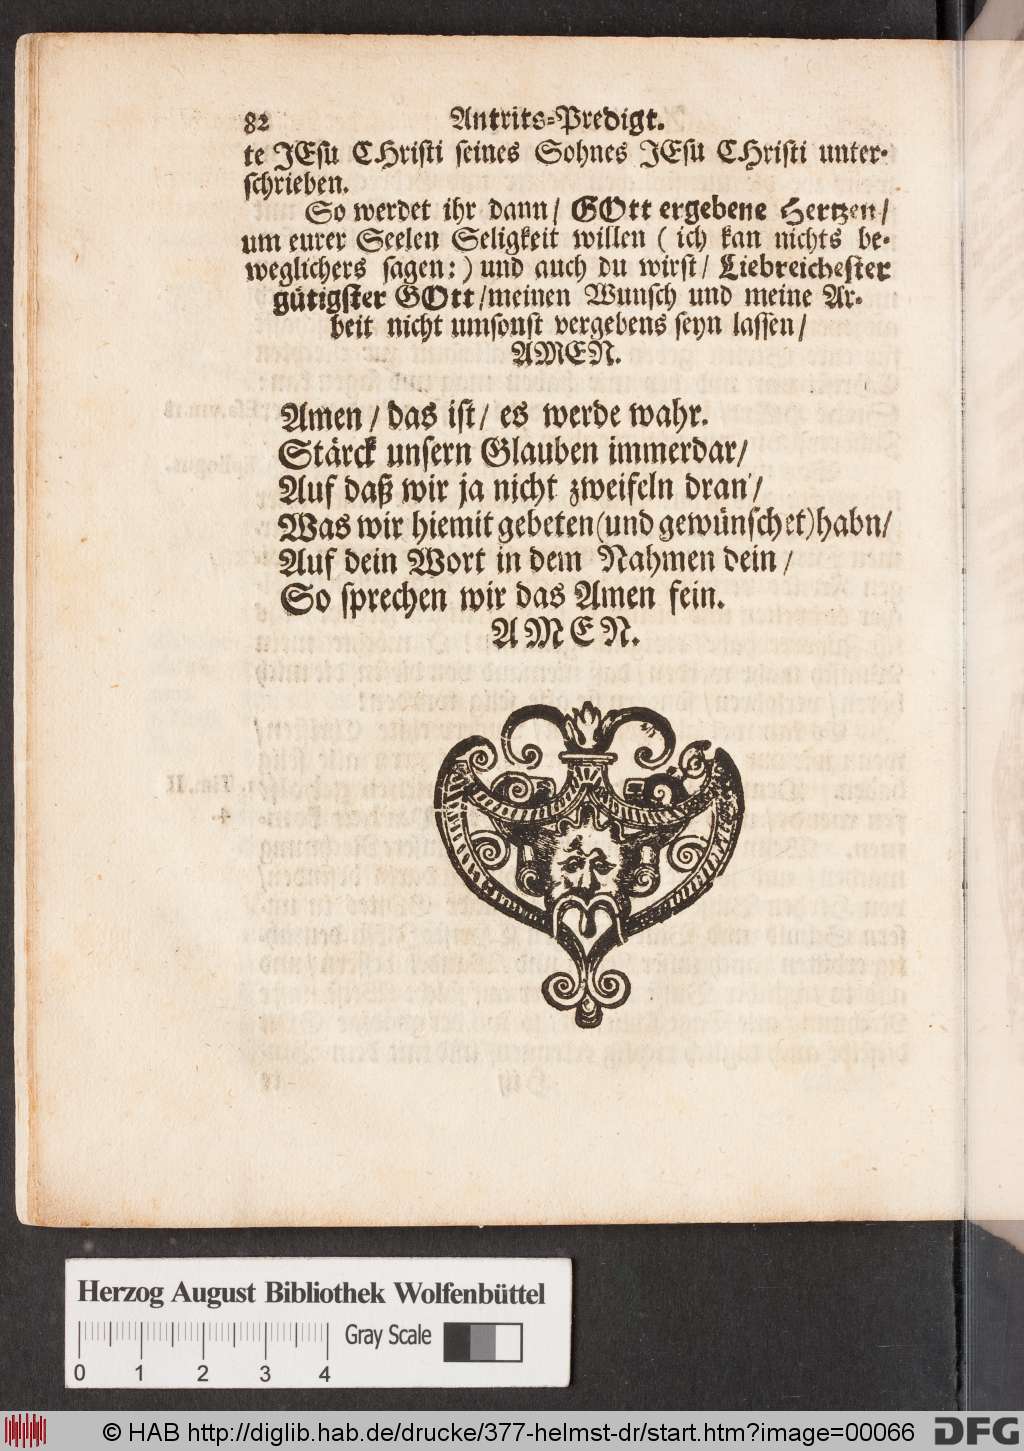 82 Antrits-Predigt.
te JEsu CHristi seines Sohnes JEsu CHristi unter-
schrieben.
So werdet ihr dann/ GOtt ergebene Hertzen/
um eurer Seelen Seligkeit willen ( ich kan nichts be-
weglichers sagen:) und auch du wirst/ Liebreichester
gütigster GOtt/meinen Wunsch und meine Ar-
beit nicht umsonst vergebens seyn lassen/
AMEN.
Amen/ das ist/ es werde wahr.
Stärck unsern Glauben immerdar/
Auf daß wir ja nicht zweifeln dran'/
Was wir hiemit gebeten(und gewünschet)habn/
Auf dein Wort in dem Nahmen dein/
So sprechen wir das Amen fein.
AMEN.
Herzog August Bibliothek Wolfenbüttel
Gray Scale
0 1 2 3 4
© HAB http://diglib.hab.de/drucke/377-helmst-dr/start.htm?image=00066
DFG